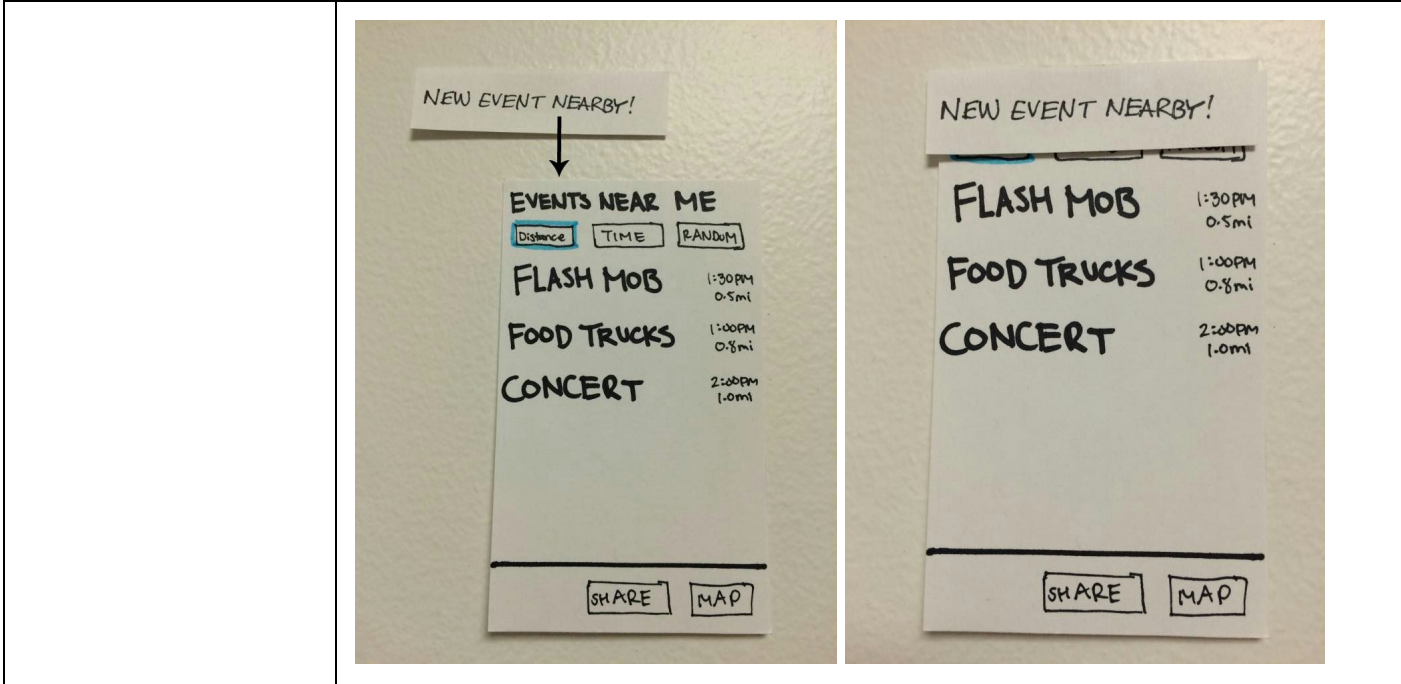 NEW EVENT NEARBY!
EVENTS NEAR ME
Distance TIME RANDOM
FLASH MOB 1:30PM
0.5mi
FOOD TRUCKS 1:00PM
0.8mi
CONCERT 2:00PM
1.0mi
SHARE MAP
NEW EVENT NEARBY!
FLASH MOB 1:30PM
0.5mi
FOOD TRUCKS 1:00PM
0.8mi
CONCERT 2:00PM
1.0mi
SHARE MAP